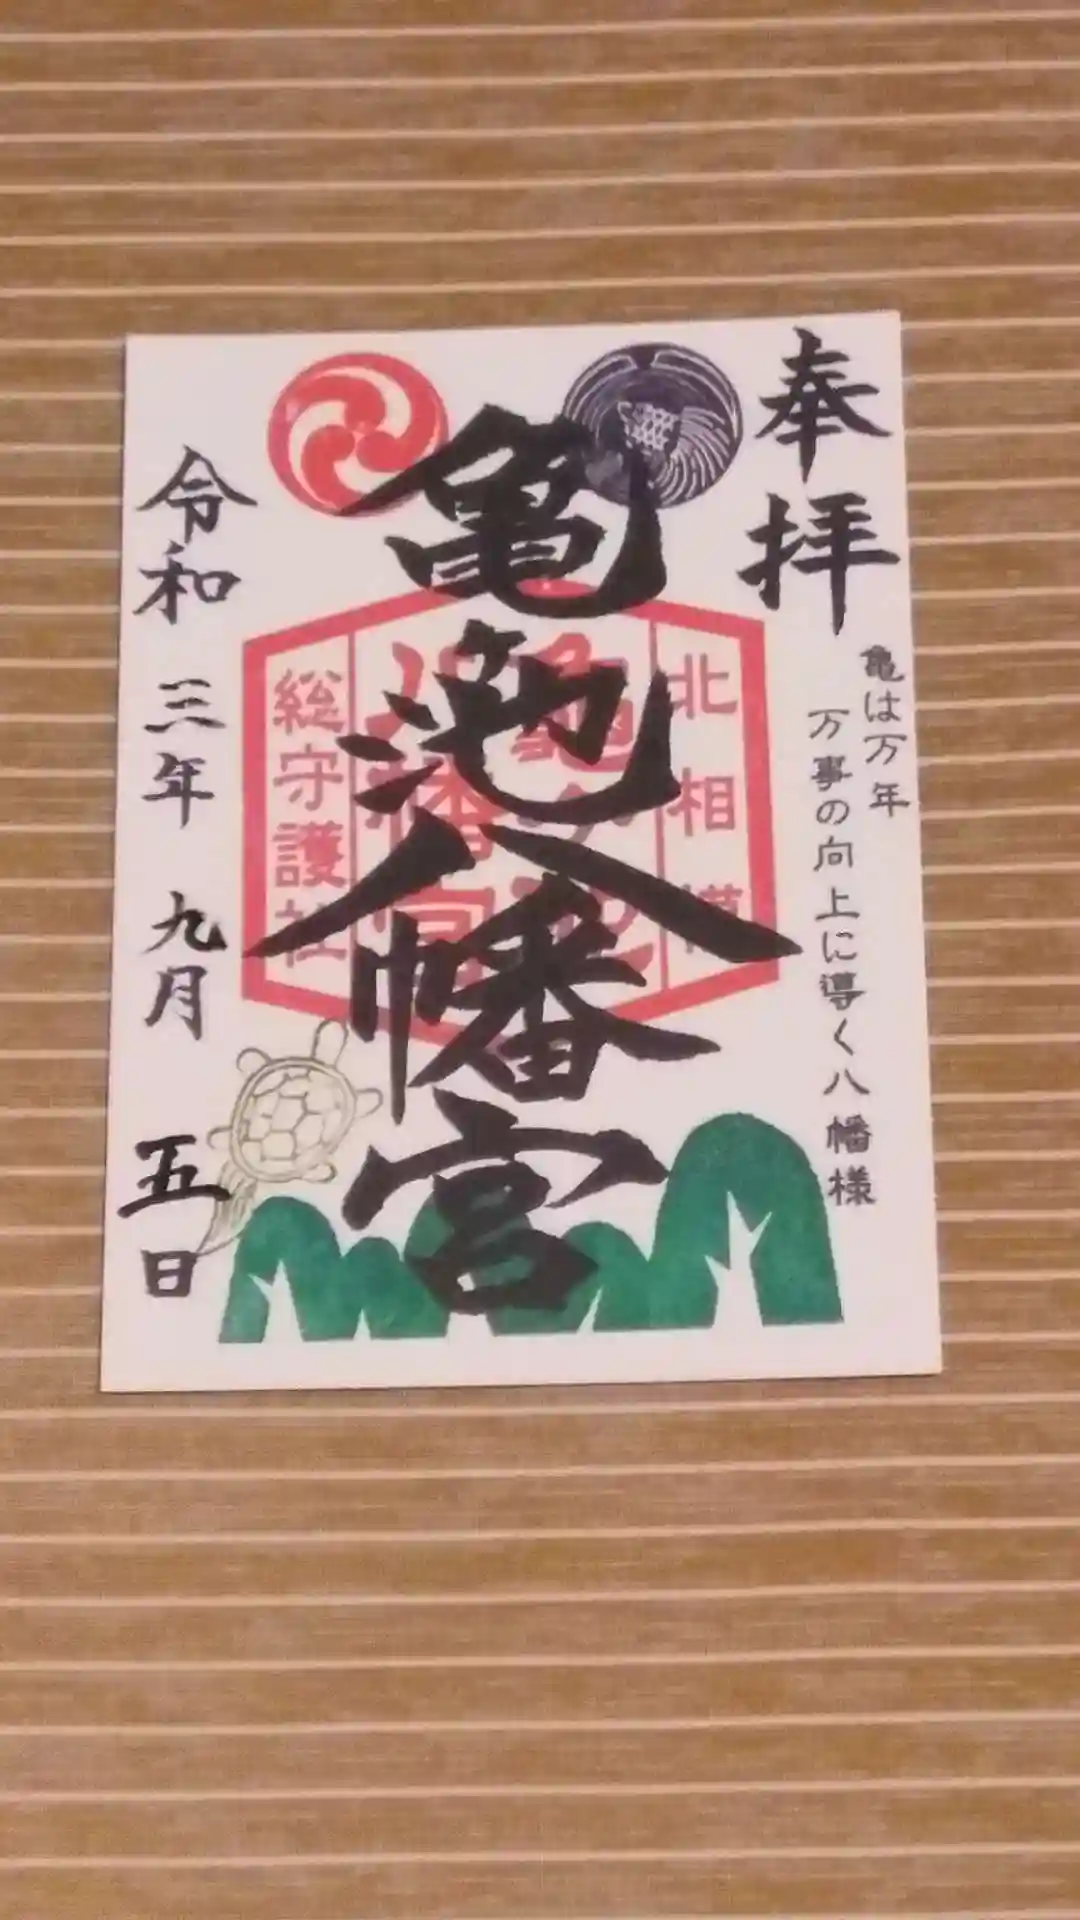 奉拝
亀は万年
万事の向上に導く八幡様
亀池八幡宮
北相模
亀ヶ池
八幡宮
総守護社
令和三年九月五日